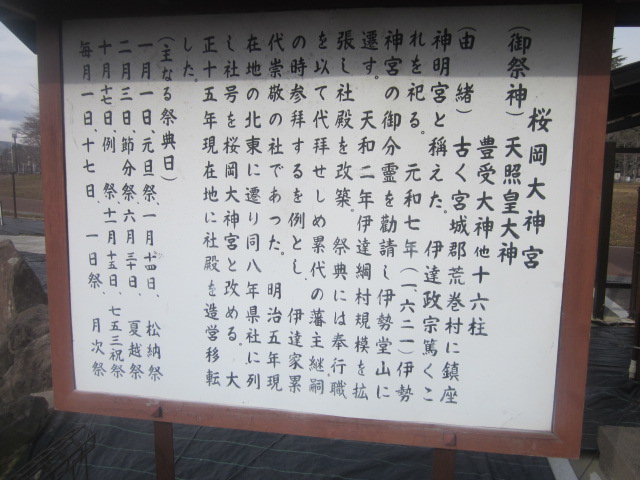 桜岡大神宮
（御祭神）天照皇大神
豊受大神他十六柱
（由緒）古く宮城郡荒巻村に鎮座
神明宮と稱えた。伊達政宗篤くこ
れを祀る。元和七年（一六二一）伊勢
神宮の御分靈を勸請し伊勢堂山に
遷す。天和二年伊達綱村規模を拡
張し社殿を改築。祭典には奉行職
を以て代拝せしめ累代の藩主継嗣
の時参拝するを例とし、伊達家累
代崇敬の社であった。明治五年現
在地の北東に遷り同八年県社に列
し社号を桜岡大神宮と改める。大
正十五年現在地に社殿を造営移転
した。
（主なる祭典日）
一月一日、元旦祭、一月十四日、松納祭
二月三日、節分祭、六月三十日、夏越祭
十月十七日、例祭、十一月十五日、七五三祝祭
毎月一日、十七日、一日祭、月次祭